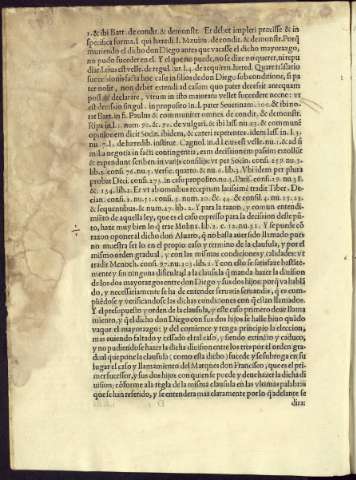 1. & ibi Batt. de condit. & demonstr. Et debet impleri præcise & in
specifica forma. l. qui hæredi. l. Mæuius. de condit. & demonstr. Porq̃
muriendo el dicho don Diego antes que vacasse el dicho mayorazgo,
no pudo suceder en el. Y el que no puede, no se dize no querer, ni repu
diar. l. eius est velle. de regul. iur. l. 4. de acquiren. hæred.
succession fasta hoc casu in filios de don Diego sub conditione, si pa
ter nolit, non debet extendi ad casum quo pater decessit antequam
post & declarare, vtrum in isto maioratu vellet succedere nec ne: vt
est decisio singul. in proposito in l. pater Seuerinam. & ibi no-
tat Bart. in §. Paulus & communiter omnes. de condit. & demonstr.
Ripa in l. 1. num. 70. & 71. de vulgari. & ibi Iass. & commũ
opinionem dicit Socin. ibidem, & cæteri repetentes. idem Iass. in l. 3.
nu. 7. l. de hæredib. institut. Cagnol. in d. l. eius est velle. nu. 2. & ad
m l. a negocia in facti contingentia, eam decisionem passim extollũt
& expendunt scribentes in varijs consilijs: vt per Socin. cons. 251. nu. 3.
lib. 2. cons. 76. nu. 3. verse. quarto. & nu. 6. lib. 3. Vbi idem per plura
probat Deci. cons. 273. in casu proposito nu. 3. Dnus. cons. 19. nu. 38.
& 134. lib. 2. Et vt ab omnibus receptum latissimè tradit Tiber. De-
cian. cons. 1. nu. 21. cons. 3. num. 20. & 44. & cons. 4. nu. 23. 25.
& sequentibus. & num. 47. lib. 2. Y para la razon, y con un entendi-
miẽto de aquella ley, que es el caso expresso para la decision deste pũ-
to, haze muy bien lo q̃ trae Molin. lib. 2. c. 12. nu. 31. Y se pude cõ
razon oponer al dicho don Aluaro, q̃ no basta auer sido llamado pues
no muestra ser lo en el propio caso y termino de la clausula, y por el
mismo orden gradual, y con las mismas cõdiciones, y calidades: vt
tradit Menoch. cons. 97. nu. 203. lib. 1. Y con esto se satisfaze bastãte-
mente y sin ninguna dificultad a la clausula q̃ manda hazer la diuision
de los dos mayorazgos entre don Diego y sus dos hijos: porq̃ va hablã
do, y necessariamente se ha de entender seruatis seruandis, q̃ es com
pliẽdose y verificandose las dichas condiciones con q̃ estan llamados.
Y el presupuesto y orden de la clausula, y este caso primero deue llana
miente, y q̃ el dicho don Diego con sus dos hijos se halle biuo quãdo
vaque el mayorazgo: y del comience y tenga principio la eleccion,
mas auiendo faltado y cessado el tal caso, y siendo extincto y caduco,
y no pudiẽdose hazer la dicha diuision entre los tres por el orden gra-
dual que pone la clausula: como esta dicho; sucede y se subroga en su
lugar el caso y llamamiento del Marques don Francisco, que es el pri-
mer successor, y sus dos hijos con quien se puede y deue hazer la dicha di
uision; cõforme a la regla de la misma clausula en las vltimas palabras
que se han referido, y se entendera mas claramente por lo q̃ adelante se
dira: